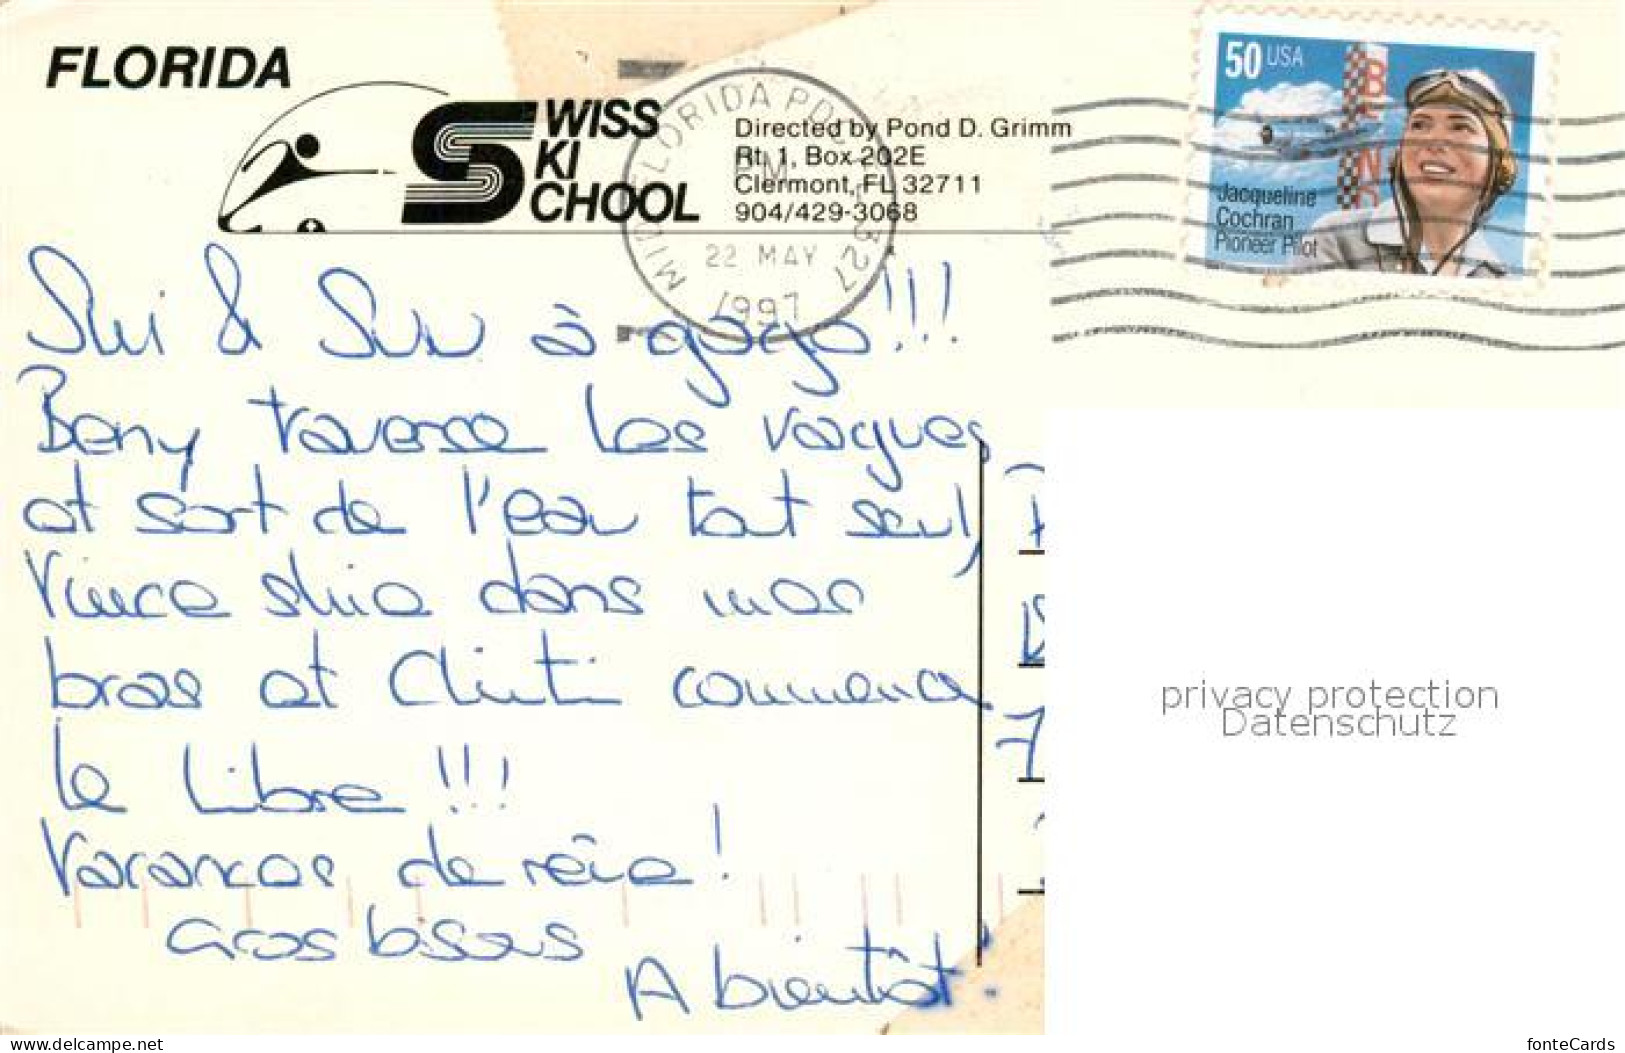 FLORIDA
SWISS
SKI
SCHOOL
Directed by Pond D. Grimm
Rt. 1, Box 202E
Clermont, FL 32711
904/429-3068
MID FLORIDA PDC FL 327
PM
22 MAY
1997
50 USA
Jacqueline
Cochran
Pioneer Pilot
Ski & Sun à gogo!!!
Beny traverse les vagues
et sort de l'eau tout seul,
Vince skie dans mes
bras et Clinti commence
le libre !!!
Vacances de rêve !
Gros bisous
A bientôt!
privacy protection
Datenschutz
www.delcampe.net
fonteCards